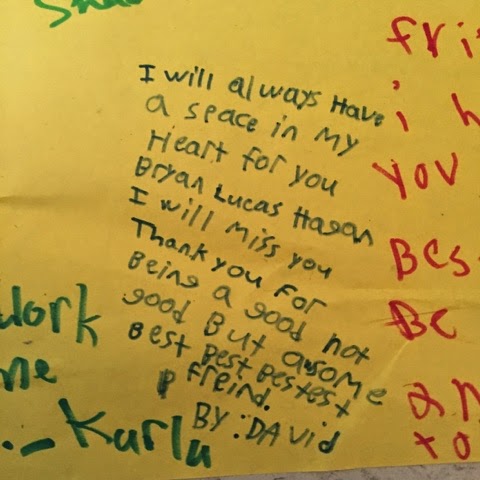 I will always Have
a space in my
Heart for you
Bryan Lucas Hagan
I will miss you
Thank you for
Being a good not
good But awsome
Best Best Bestest
freind.
BY: DAvid
work
me
Karla
fri
i h
you
Bes
Be
an
to